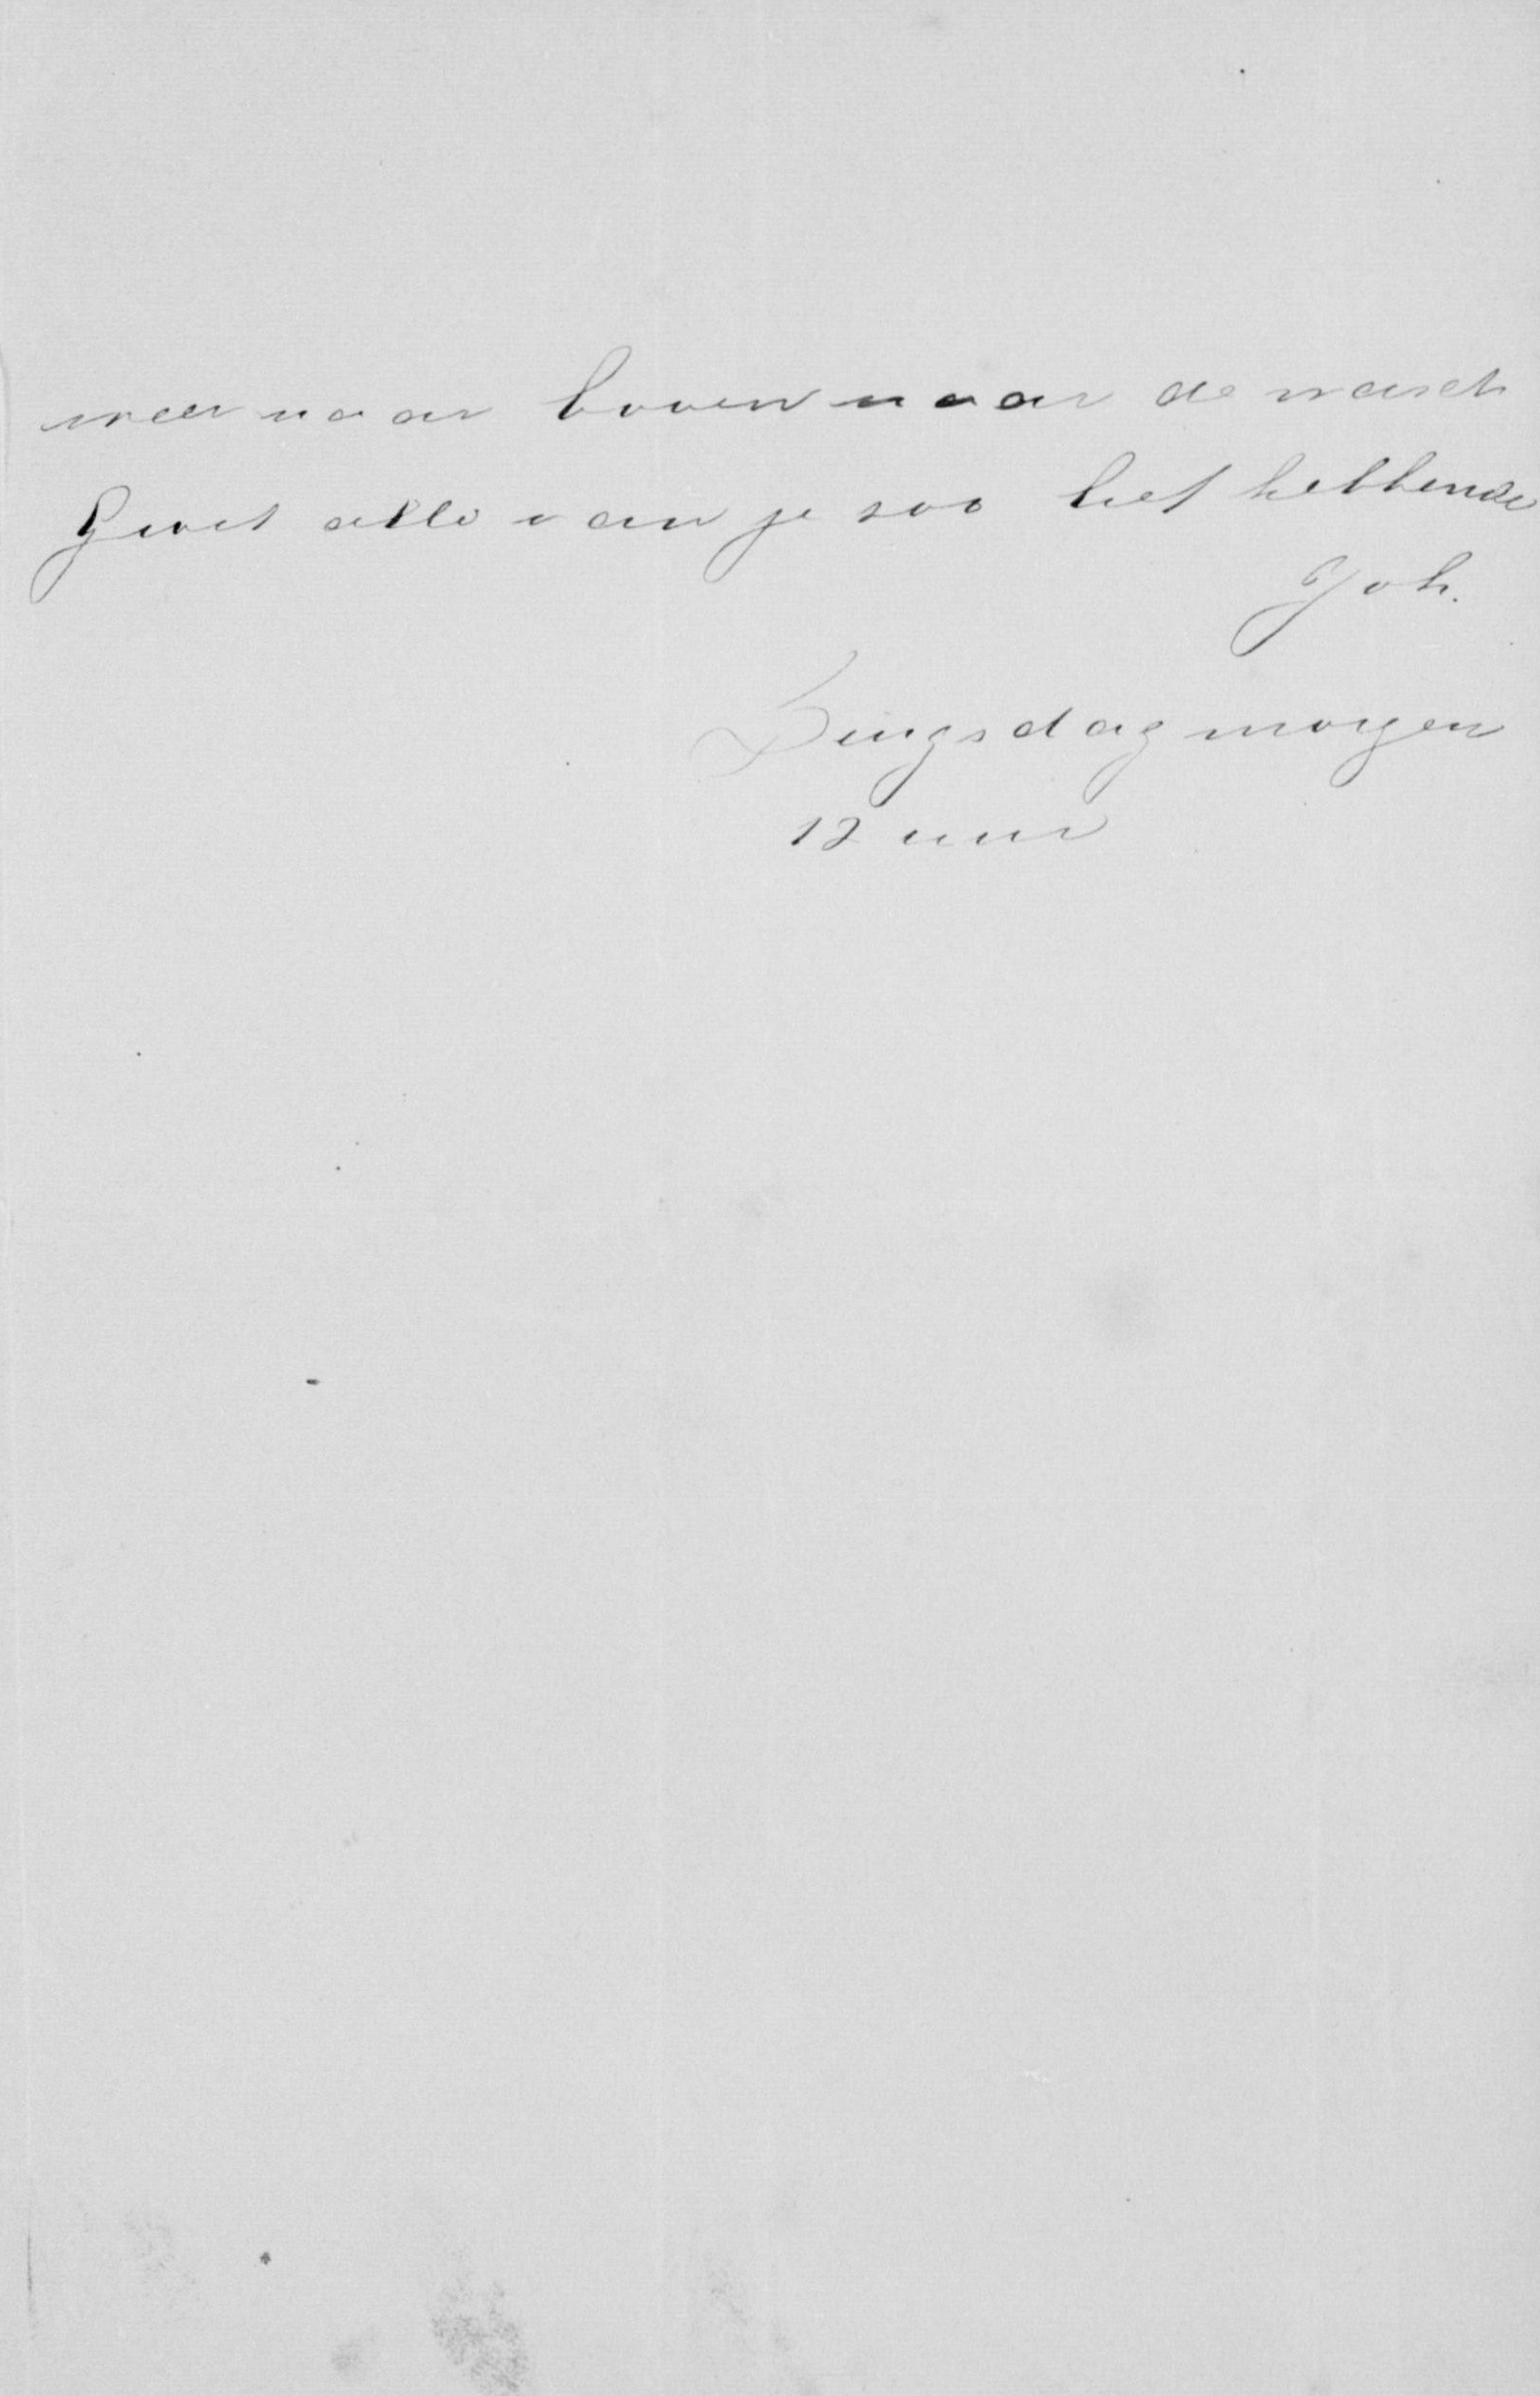 weer naar boven naar de wasch
Groet alle van je zoo lief hebbende
Joh.
Dingsdag morgen
12 uur